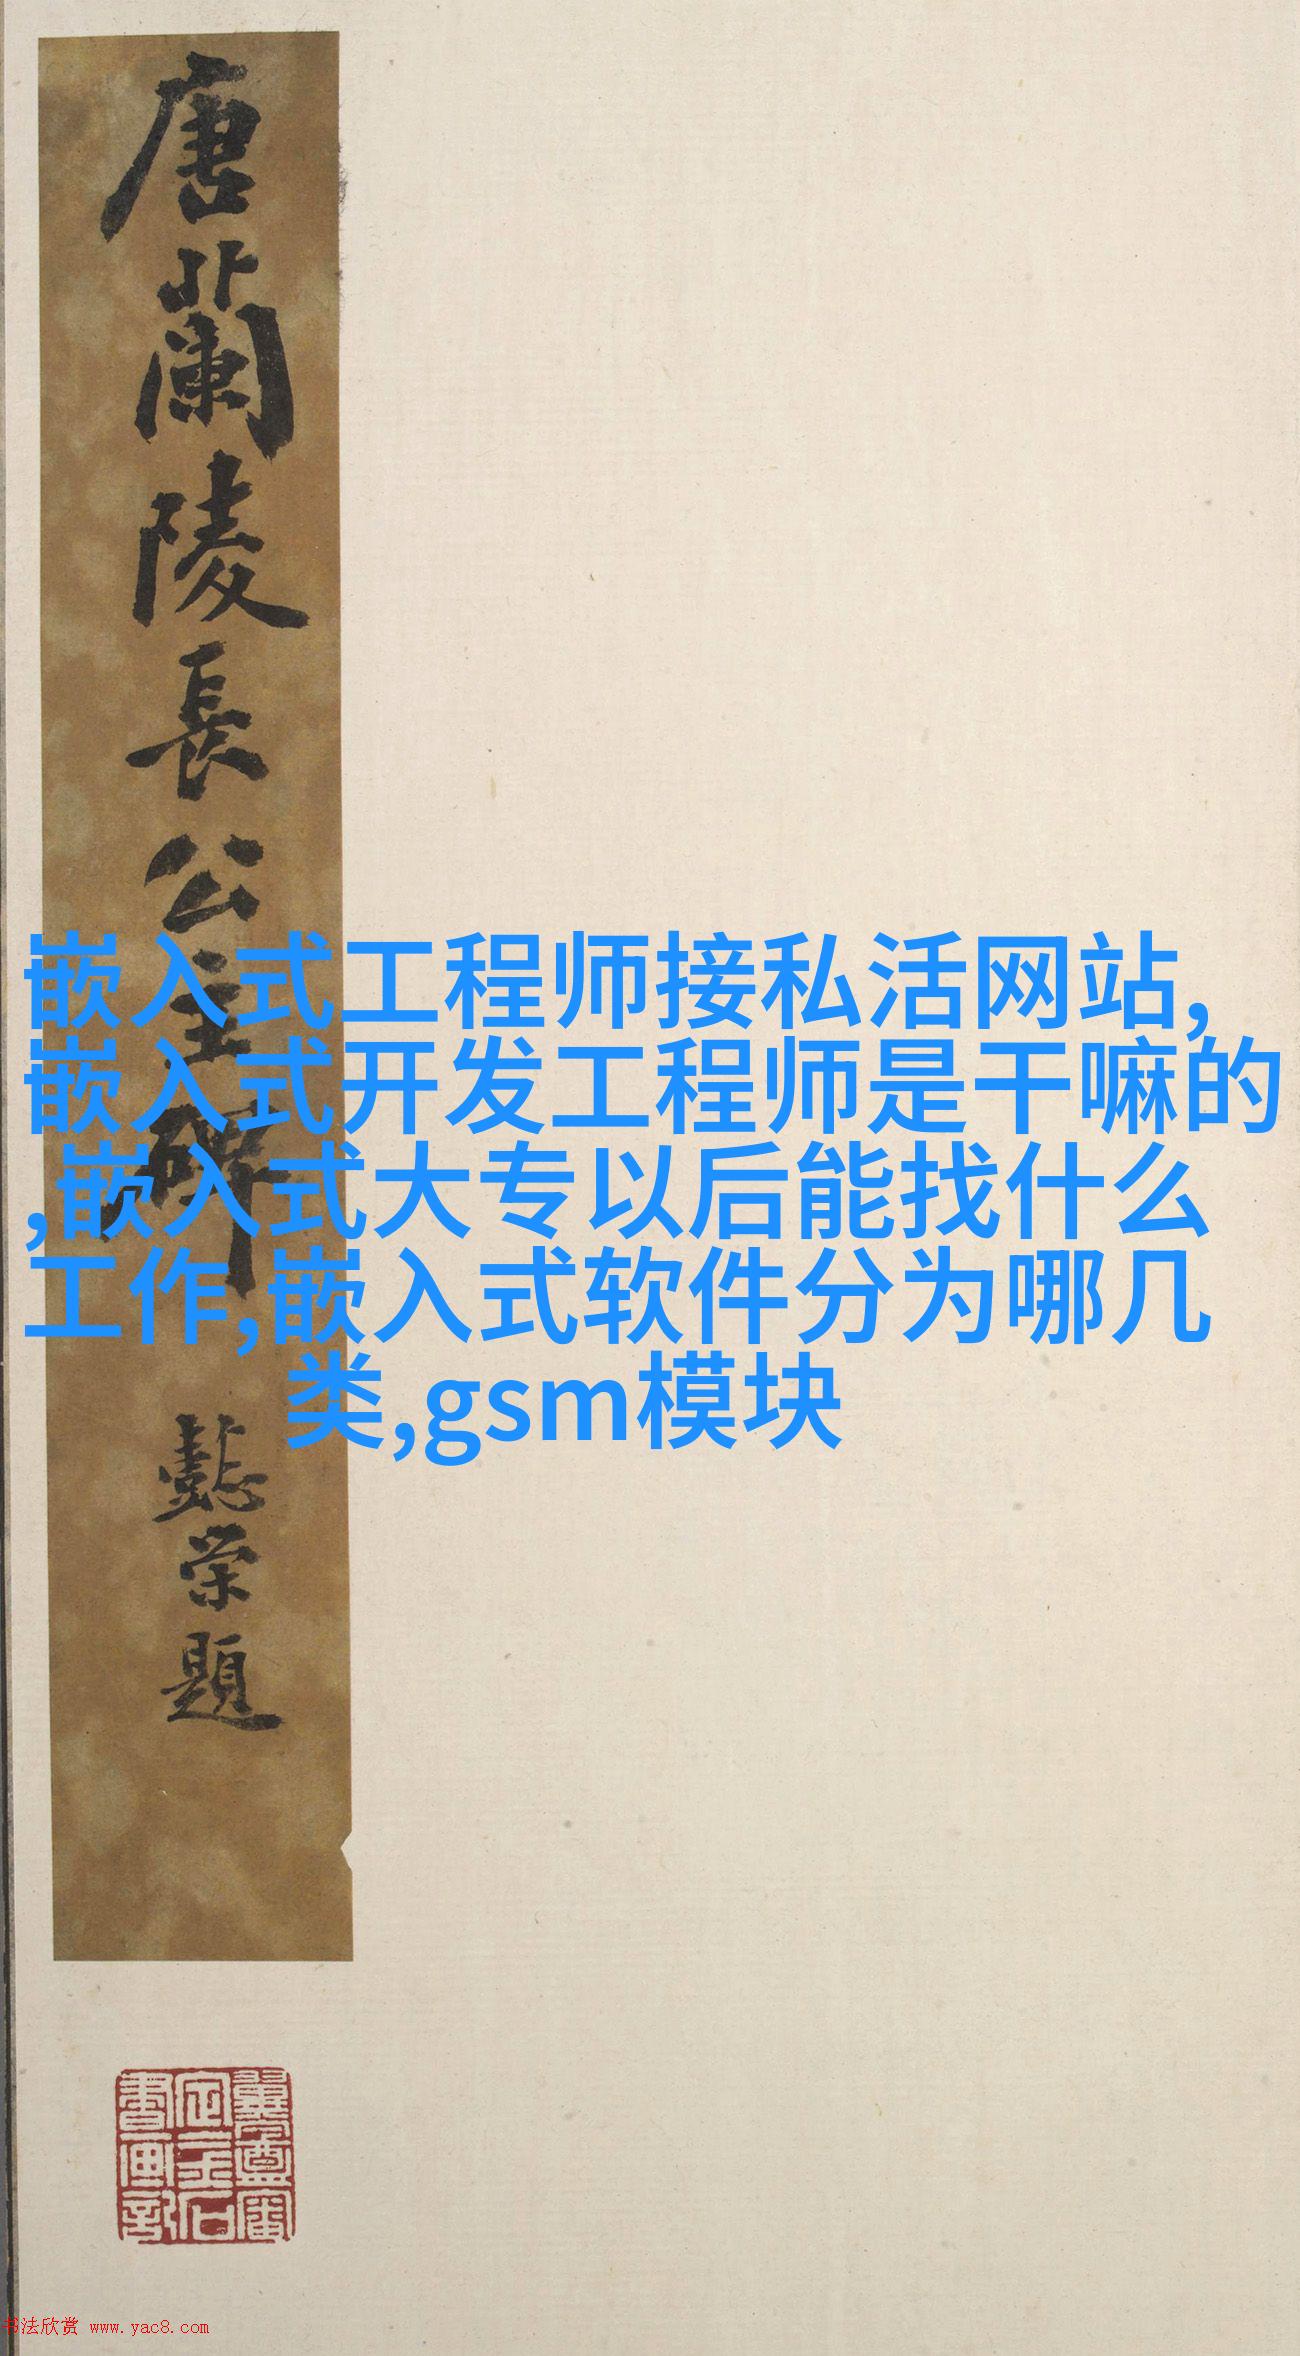 唐蘭陵長公主碑
懿榮題
嵌入式工程师接私活网站,
嵌入式开发工程师是干嘛的
,嵌入式大专以后能找什么
工作,嵌入式软件分为哪几
类,gsm模块
书法欣赏 www.yac8.com